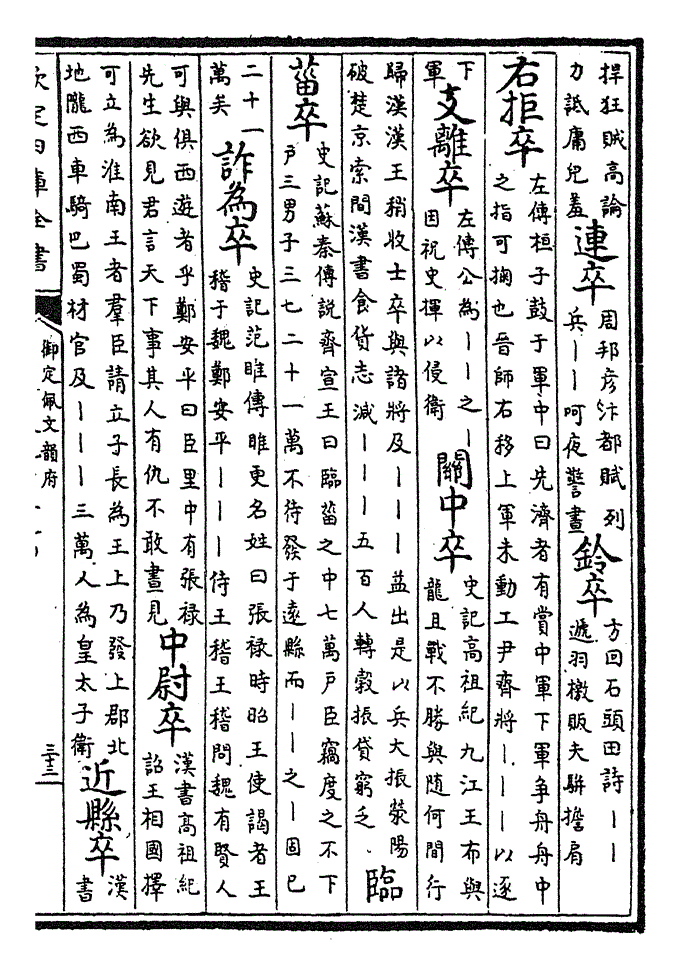 捍狂賊高論
力詆庸兒羞
連卒
周邦彦汴都賦列
兵丨丨呵夜警晝
鈴卒
方回石頭田詩丨丨
遞羽檄販夫駢擔肩
右拒卒
左傳桓子鼓于軍中曰先濟者有賞中軍下軍争舟舟中
之指可掬也晉師右移上軍未動工尹齊將丨丨丨以逐
下
軍
支離卒
左傳公為丨丨之丨
因祝史揮以侵衛
關中卒
史記高祖紀九江王布與
龍且戰不勝與随何間行
歸漢漢王稍收士卒與諸將及丨丨丨益出是以兵大振滎陽
破楚京索間漢書食貨志減丨丨丨五百人轉穀振貸窮乏
臨
菑卒
史記蘇秦傳説齊宣王曰臨菑之中七萬戸臣竊度之不下
戸三男子三七二十一萬不待發于遠縣而丨丨之丨固已
二十一
萬矣
詐為卒
史記范睢傳睢更名姓曰張禄時昭王使謁者王
稽于魏鄭安平丨丨丨侍王稽王稽問魏有賢人
可與俱西遊者乎鄭安平曰臣里中有張禄
先生欲見君言天下事其人有仇不敢晝見
中尉卒
漢書高祖紀
詔王相國擇
可立為淮南王者羣臣請立子長為王上乃發上郡北
地隴西車騎巴蜀材官及丨丨丨三萬人為皇太子衛
近縣卒
漢
書
欽定四庫全書
御定佩文韻府
三十三